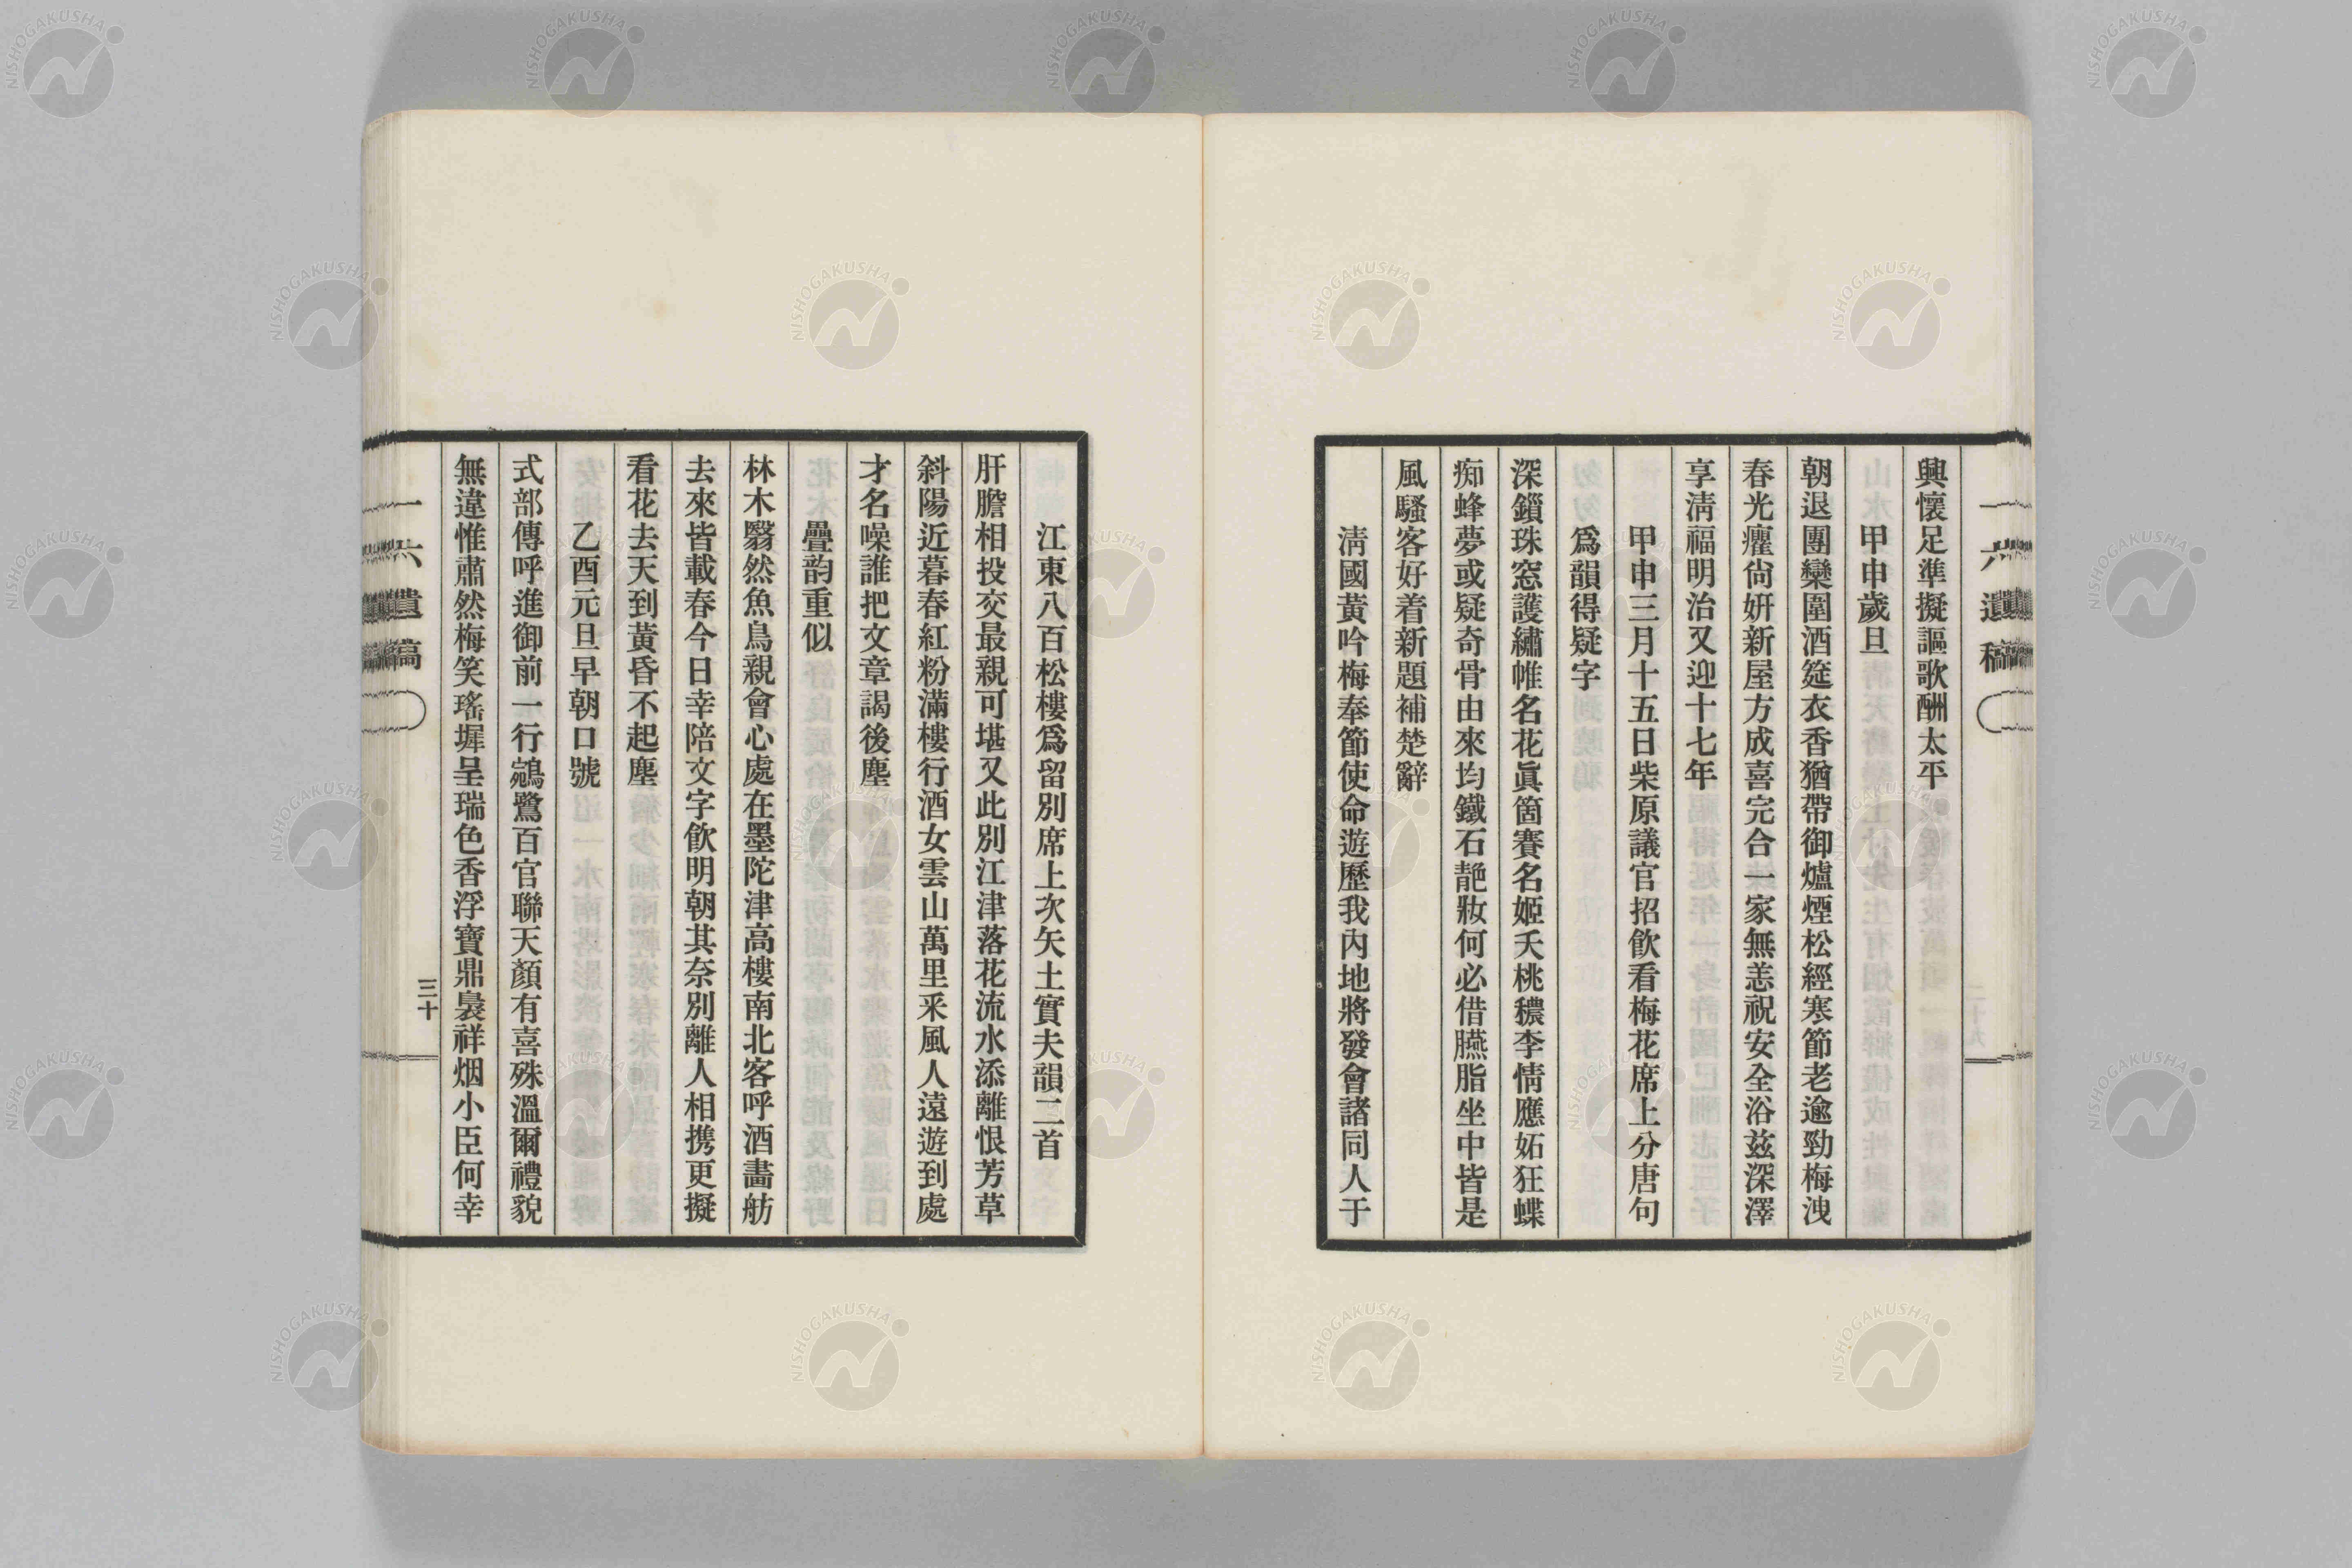 一六遺稿
興懷足準擬謳歌酬太平
甲申歲旦
朝退團欒圍酒筵衣香猶帶御爐煙松經寒節老逾勁梅洩
春光癯尙姸新屋方成喜完合一家無恙祝安全浴兹深澤
享淸福明治又迎十七年
甲申三月十五日柴原議官招飮看梅花席上分唐句
爲韻得疑字
深鎻珠窓護繡帷名花眞箇賽名姬夭桃穠李情應妬狂蝶
痴蜂夢或疑奇骨由來均鐵石靘妝何必借臙脂坐中皆是
風騷客好着新題補楚辭
淸國黃吟梅奉節使命遊歷我內地將發會諸同人于
江東八百松樓爲留別席上次矢土實夫韻二首
肝膽相投交最親可堪又此別江津落花流水添離恨芳草
斜陽近暮春紅粉滿樓行酒女雲山萬里釆風人遠遊到處
才名噪誰把文章謁後塵
疊韵重似
林木翳然魚鳥親會心處在墨陀津高樓南北客呼酒畵舫
去來皆載春今日幸陪文字飮明朝其奈別離人相携更擬
看花去天到黃昏不起塵
乙酉元旦早朝口號
式部傳呼進御前一行鵷鷺百官聯天顏有喜殊溫爾禮貌
無違惟肅然梅笑瑤墀呈瑞色香浮寶鼎裊祥烟小臣何幸
一六遺稿
三十
NISHOGAKUSHA